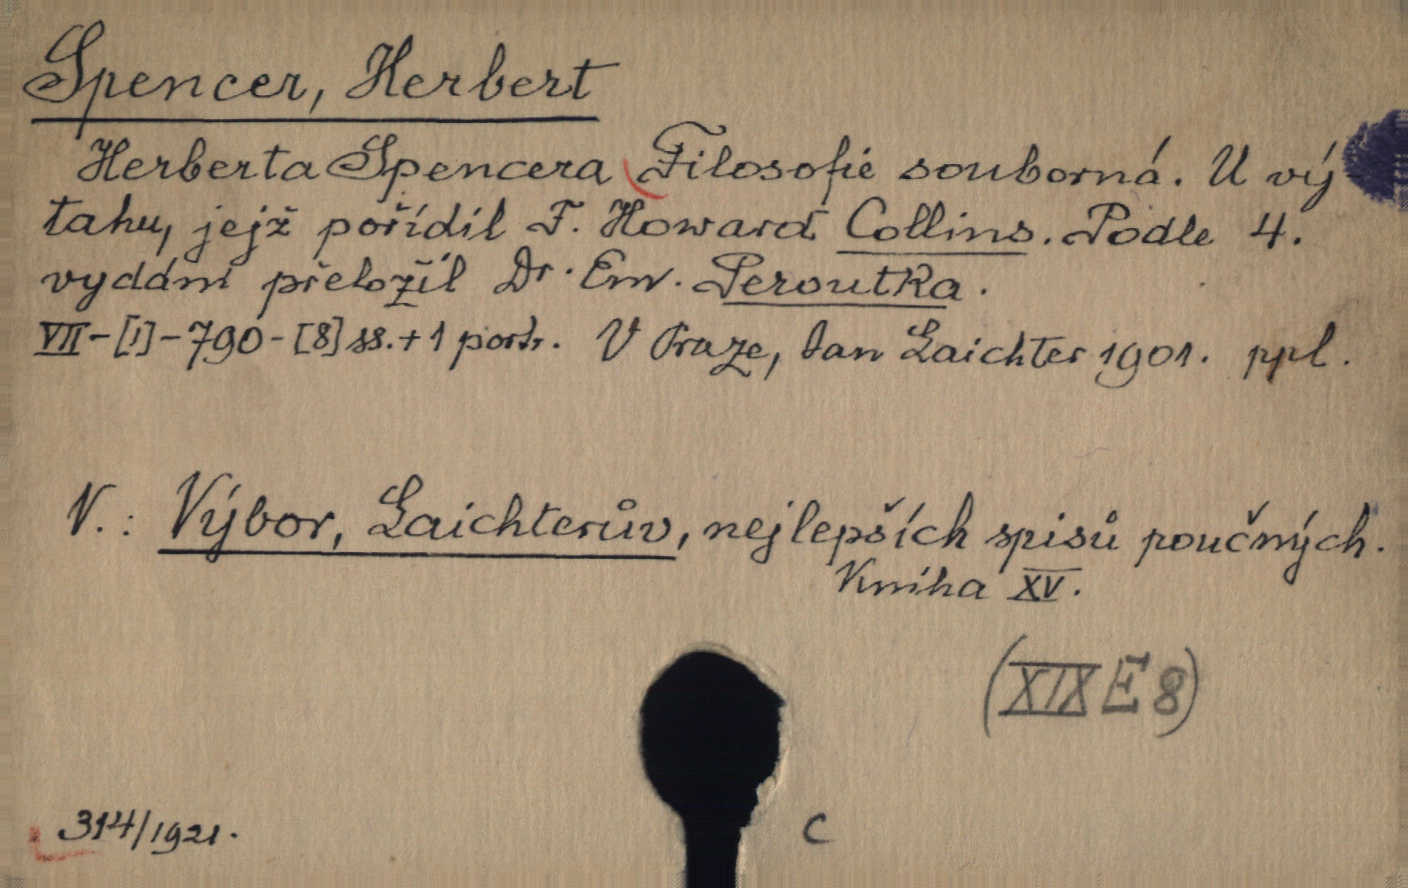 Spencer, Herbert
Herberta Spencera Filosofie souborná. U vý
tahu, jejž pořídil F. Howard Collins. Podle 4.
vydání přeložil Dr. Em. Peroutka.
VII-[1]-790-[8] ss.+1 portr. V Praze, Jan Laichter 1901. ppl.
V.: Výbor, Laichterův, nejlepších spisů poučných.
Kniha XV.
(XIX E 8)
314/1921.
C